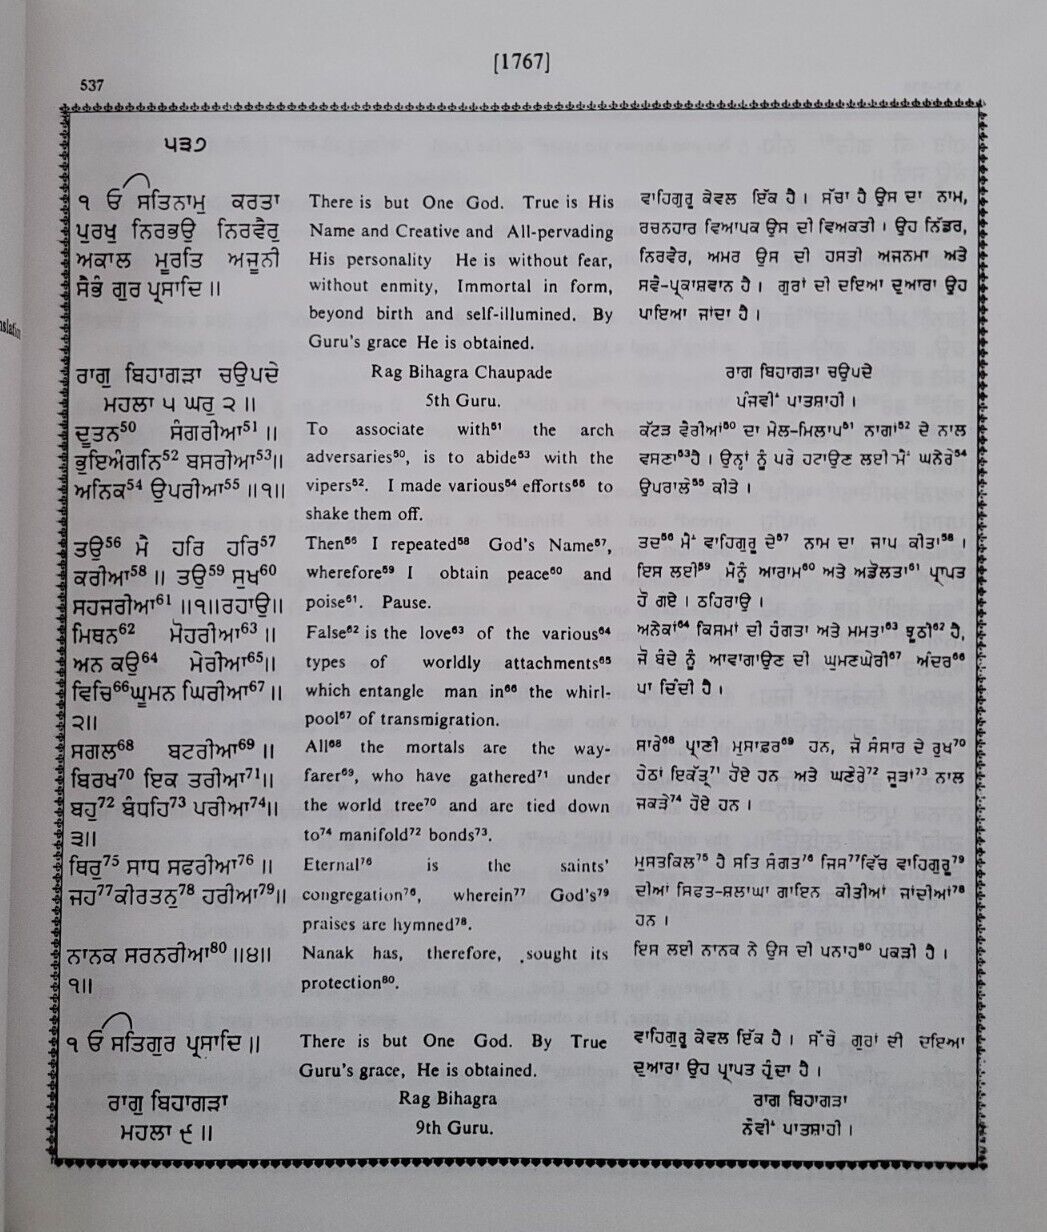 [1767]
537
੫੩੭
੧ ਓ ਸਤਿਨਾਮੁ ਕਰਤਾ
ਪੁਰਖੁ ਨਿਰਭਉ ਨਿਰਵੈਰੁ
ਅਕਾਲ ਮੂਰਤਿ ਅਜੂਨੀ
ਸੈਭੰ ਗੁਰ ਪ੍ਰਸਾਦਿ॥
There is but One God. True is His
Name and Creative and All-pervading
His personality He is without fear,
without enmity, Immortal in form,
beyond birth and self-illumined. By
Guru's grace He is obtained.
ਵਾਹਿਗੁਰੂ ਕੇਵਲ ਇੱਕ ਹੈ। ਸੱਚਾ ਹੈ ਉਸ ਦਾ ਨਾਮ,
ਰਚਨਹਾਰ ਵਿਆਪਕ ਉਸ ਦੀ ਵਿਅਕਤੀ। ਉਹ ਨਿੱਡਰ,
ਨਿਰਵੈਰ, ਅਮਰ ਉਸ ਦੀ ਹਸਤੀ ਅਜਨਮਾ ਅਤੇ
ਸਵੈ-ਪ੍ਰਕਾਸ਼ਵਾਨ ਹੈ। ਗੁਰਾਂ ਦੀ ਦਇਆ ਦੁਆਰਾ ਉਹ
ਪਾਇਆ ਜਾਂਦਾ ਹੈ।
ਰਾਗੁ ਬਿਹਾਗੜਾ ਚਉਪਦੇ
ਮਹਲਾ ੫ ਘਰੁ ੨॥
Rag Bihagra Chaupade
5th Guru.
ਰਾਗ ਬਿਹਾਗੜਾ ਚਉਪਦੇ
ਪੰਜਵੀਂ ਪਾਤਸ਼ਾਹੀ।
ਦੂਤਨ⁵⁰ ਸੰਗਰੀਆ⁵¹॥
ਭੁਇਅੰਗਨਿ⁵² ਬਸਰੀਆ⁵³॥
ਅਨਿਕ⁵⁴ ਉਪਰੀਆ⁵⁵॥੧॥
To associate with⁵¹ the arch
adversaries⁵⁰, is to abide⁵³ with the
vipers⁵². I made various⁵⁴ efforts⁵⁵ to
shake them off.
ਕੱਟੜ ਵੈਰੀਆਂ⁵⁰ ਦਾ ਮੇਲ-ਮਿਲਾਪ⁵¹ ਨਾਗਾਂ⁵² ਦੇ ਨਾਲ
ਵਸਣਾ⁵³ਹੈ। ਉਨ੍ਹਾਂ ਨੂੰ ਪਰੇ ਹਟਾਉਣ ਲਈ ਮੈਂ ਘਨੇਰੇ⁵⁴
ਉਪਰਾਲੇ⁵⁵ ਕੀਤੇ।
ਤਉ⁵⁶ ਮੈ ਹਰਿ ਹਰਿ⁵⁷
ਕਰੀਆ⁵⁸॥ ਤਉ⁵⁹ ਸੁਖ⁶⁰
ਸਹਜਰੀਆ⁶¹॥੧॥ਰਹਾਉ॥
Then⁵⁶ I repeated⁵⁸ God's Name⁵⁷,
wherefore⁵⁹ I obtain peace⁶⁰ and
poise⁶¹. Pause.
ਤਦ⁵⁶ ਮੈਂ ਵਾਹਿਗੁਰੂ ਦੇ⁵⁷ ਨਾਮ ਦਾ ਜਾਪ ਕੀਤਾ⁵⁸।
ਇਸ ਲਈ⁵⁹ ਮੈਨੂੰ ਆਰਾਮ⁶⁰ ਅਤੇ ਅਡੋਲਤਾ⁶¹ ਪ੍ਰਾਪਤ
ਹੋ ਗਏ। ਠਹਿਰਾਉ।
ਮਿਥਨ⁶² ਮੋਹਰੀਆ⁶³॥
ਅਨ ਕਉ⁶⁴ ਮੇਰੀਆ⁶⁵॥
ਵਿਚਿ⁶⁶ਘੂਮਨ ਘਿਰੀਆ⁶⁷॥
੨॥
False⁶² is the love⁶³ of the various⁶⁴
types of worldly attachments⁶⁵
which entangle man in⁶⁶ the whirl-
pool⁶⁷ of transmigration.
ਅਨੇਕਾਂ⁶⁴ ਕਿਸਮਾਂ ਦੀ ਹੰਗਤਾ ਅਤੇ ਮਮਤਾ⁶³ ਝੂਠੀ⁶² ਹੈ,
ਜੋ ਬੰਦੇ ਨੂੰ ਆਵਾਗਾਉਣ ਦੀ ਘੁਮਣਘੇਰੀ⁶⁷ ਅੰਦਰ⁶⁶
ਪਾ ਦਿੰਦੀ ਹੈ।
ਸਗਲ⁶⁸ ਬਟਰੀਆ⁶⁹॥
ਬਿਰਖ⁷⁰ ਇਕ ਤਰੀਆ⁷¹॥
ਬਹੁ⁷² ਬੰਧਹਿ⁷³ ਪਰੀਆ⁷⁴॥
੩॥
All⁶⁸ the mortals are the way-
farer⁶⁹, who have gathered⁷¹ under
the world tree⁷⁰ and are tied down
to⁷⁴ manifold⁷² bonds⁷³.
ਸਾਰੇ⁶⁸ ਪ੍ਰਾਣੀ ਮੁਸਾਫ਼ਰ⁶⁹ ਹਨ, ਜੋ ਸੰਸਾਰ ਦੇ ਰੁਖ⁷⁰
ਹੇਠਾਂ ਇਕੱਤ੍ਰ⁷¹ ਹੋਏ ਹਨ ਅਤੇ ਘਣੇਰੇ⁷² ਜੂੜਾਂ⁷³ ਨਾਲ
ਜਕੜੇ⁷⁴ ਹੋਏ ਹਨ।
ਥਿਰੁ⁷⁵ ਸਾਧ ਸਫਰੀਆ⁷⁶॥
ਜਹ⁷⁷ਕੀਰਤਨੁ⁷⁸ ਹਰੀਆ⁷⁹॥
Eternal⁷⁵ is the saints'
congregation⁷⁶, wherein⁷⁷ God's⁷⁹
praises are hymned⁷⁸.
ਮੁਸਤਕਿਲ⁷⁵ ਹੈ ਸਤਿ ਸੰਗਤ⁷⁶ ਜਿਸ⁷⁷ਵਿੱਚ ਵਾਹਿਗੁਰੂ⁷⁹
ਦੀਆਂ ਸਿਫਤ-ਸ਼ਲਾਘਾ ਗਾਇਨ ਕੀਤੀਆਂ ਜਾਂਦੀਆਂ⁷⁸
ਹਨ।
ਨਾਨਕ ਸਰਨਰੀਆ⁸⁰॥੪॥
੧॥
Nanak has, therefore, sought its
protection⁸⁰.
ਇਸ ਲਈ ਨਾਨਕ ਨੇ ਉਸ ਦੀ ਪਨਾਹ⁸⁰ ਪਕੜੀ ਹੈ।
੧ ਓ ਸਤਿਗੁਰ ਪ੍ਰਸਾਦਿ॥
There is but One God. By True
Guru's grace, He is obtained.
ਵਾਹਿਗੁਰੂ ਕੇਵਲ ਇੱਕ ਹੈ। ਸੱਚੇ ਗੁਰਾਂ ਦੀ ਦਇਆ
ਦੁਆਰਾ ਉਹ ਪ੍ਰਾਪਤ ਹੁੰਦਾ ਹੈ।
ਰਾਗੁ ਬਿਹਾਗੜਾ
ਮਹਲਾ ੯॥
Rag Bihagra
9th Guru.
ਰਾਗ ਬਿਹਾਗੜਾ
ਨੌਵੀਂ ਪਾਤਸ਼ਾਹੀ।